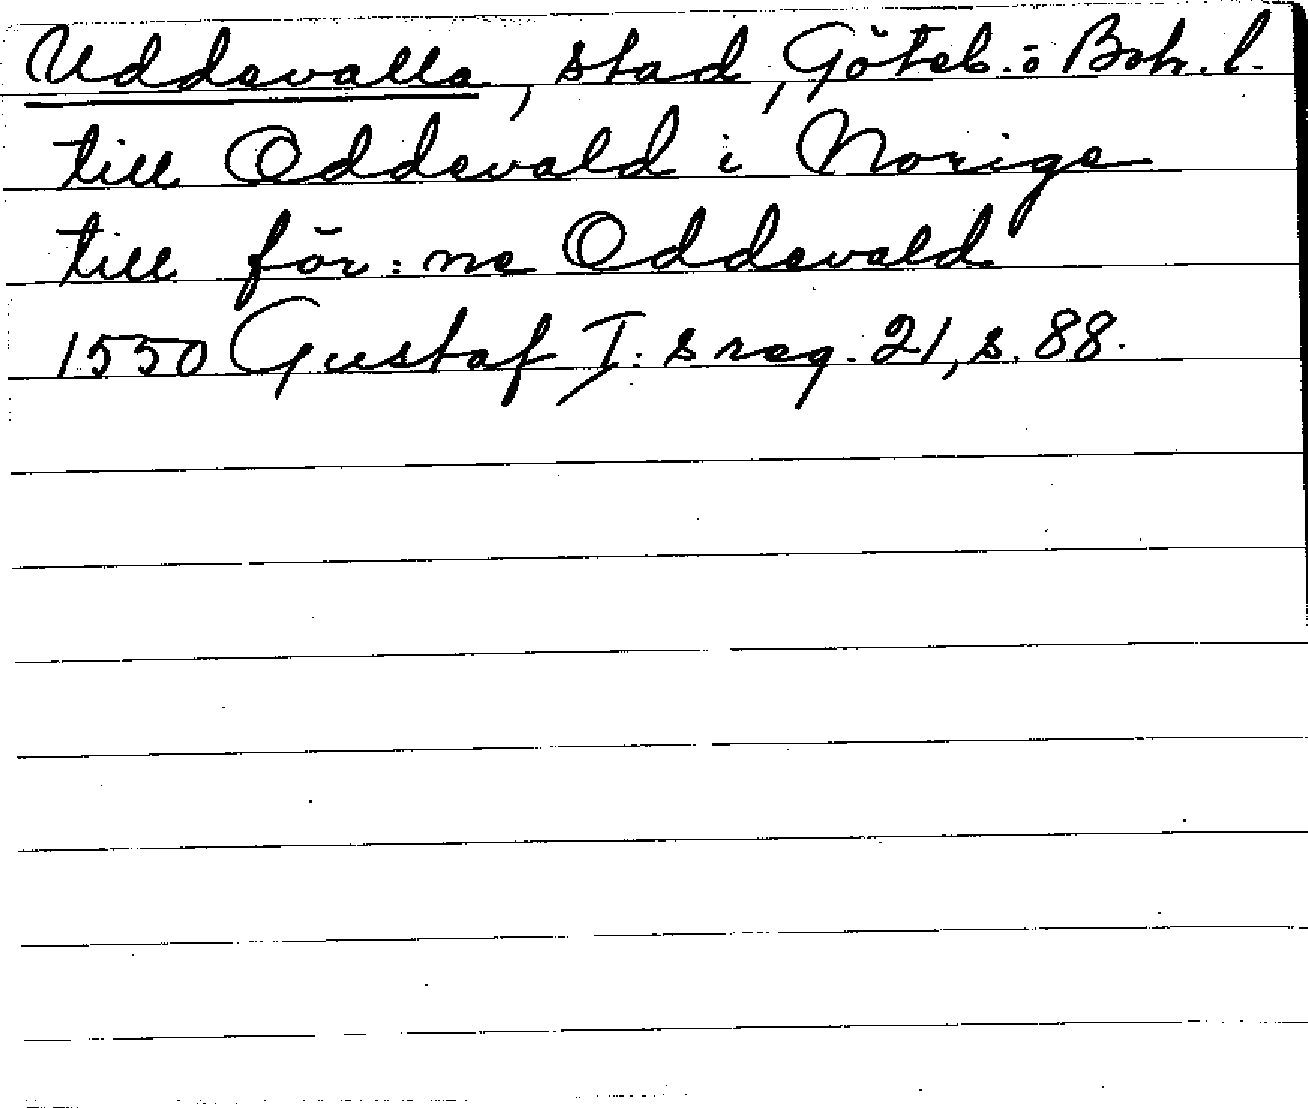 Uddevalla, stad, Göteb. o Boh. l.
till Oddevald i Norige
till för:ne Oddevald
1550 Gustaf I:s reg. 21, s. 88.